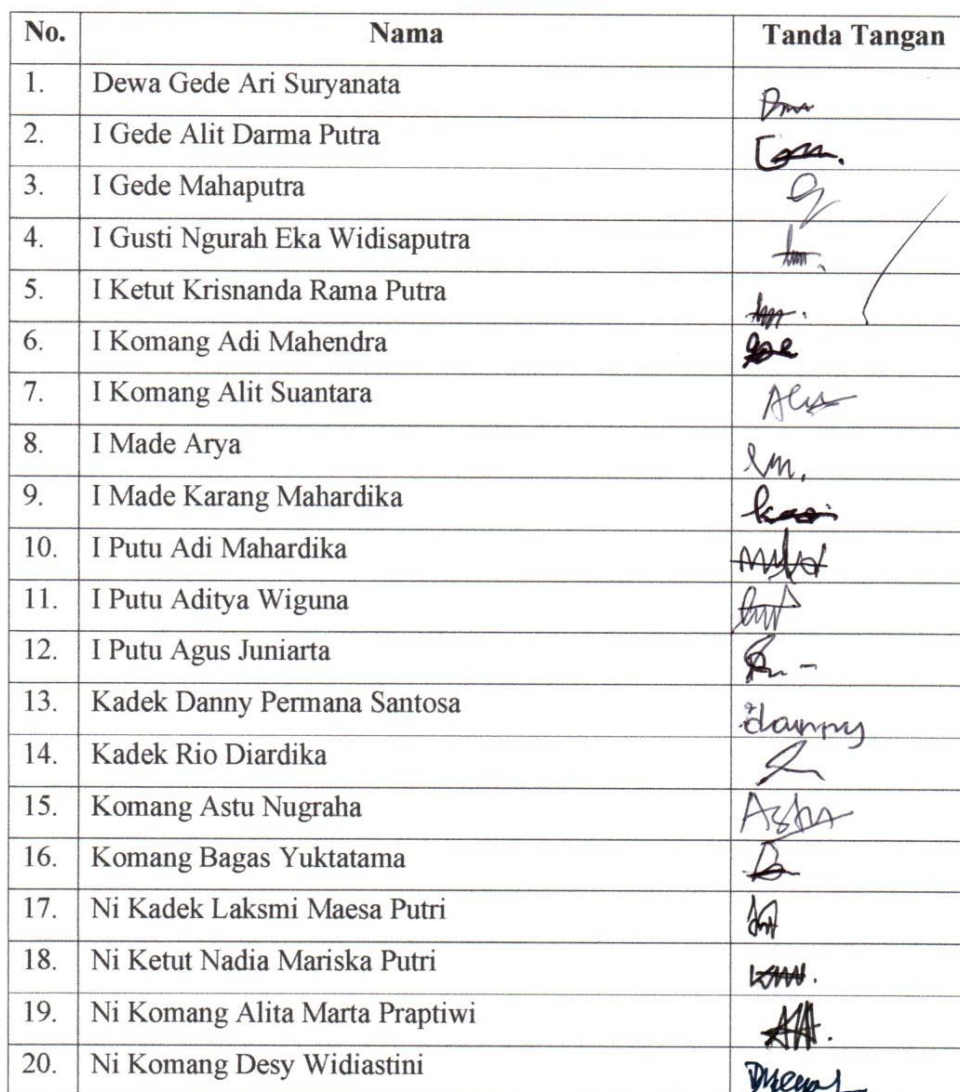 No. Nama Tanda Tangan
1. Dewa Gede Ari Suryanata
2. I Gede Alit Darma Putra
3. I Gede Mahaputra
4. I Gusti Ngurah Eka Widisaputra
5. I Ketut Krisnanda Rama Putra
6. I Komang Adi Mahendra
7. I Komang Alit Suantara
8. I Made Arya
9. I Made Karang Mahardika
10. I Putu Adi Mahardika
11. I Putu Aditya Wiguna
12. I Putu Agus Juniarta
13. Kadek Danny Permana Santosa danny
14. Kadek Rio Diardika
15. Komang Astu Nugraha
16. Komang Bagas Yuktatama
17. Ni Kadek Laksmi Maesa Putri
18. Ni Ketut Nadia Mariska Putri
19. Ni Komang Alita Marta Praptiwi
20. Ni Komang Desy Widiastini